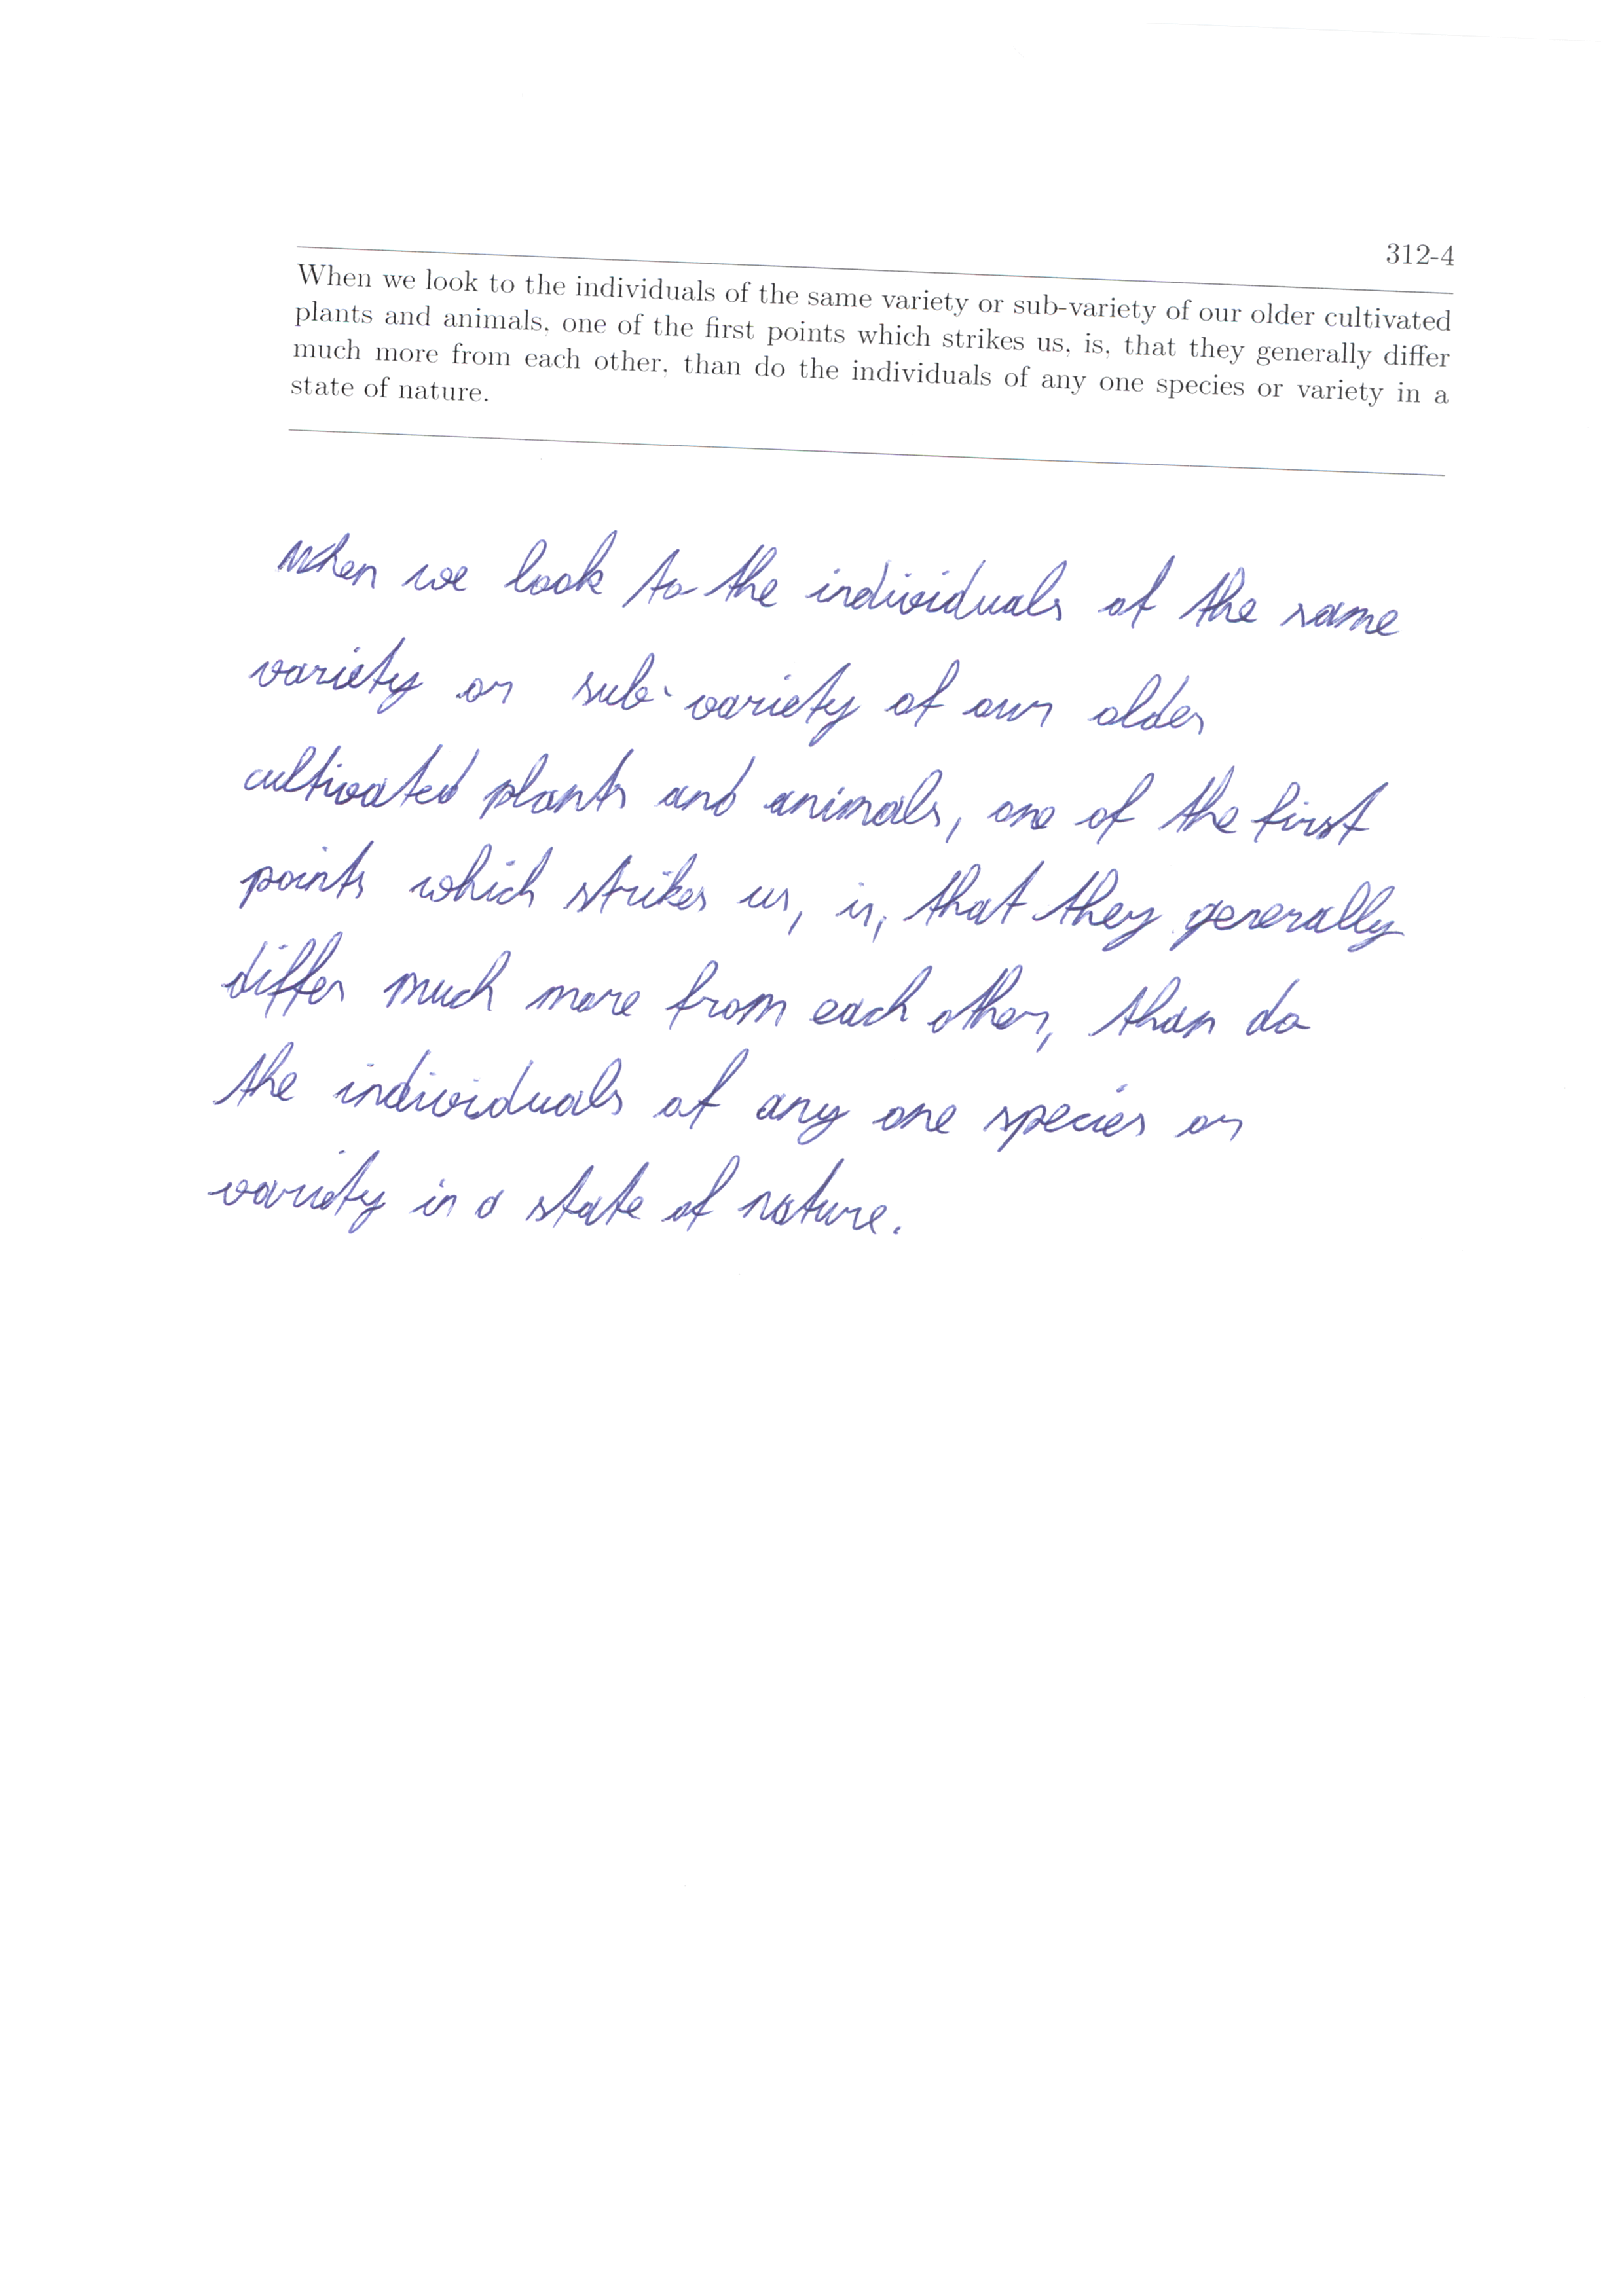 312-4
When we look to the individuals of the same variety or sub-variety of our older cultivated
plants and animals, one of the first points which strikes us, is, that they generally differ
much more from each other, than do the individuals of any one species or variety in a
state of nature.
When we look to the individuals of the same
variety or sub-variety of our older
cultivated plants and animals, one of the first
points which strikes us, is, that they generally
differ much more from each other, than do
the individuals of any one species or
variety in a state of nature.